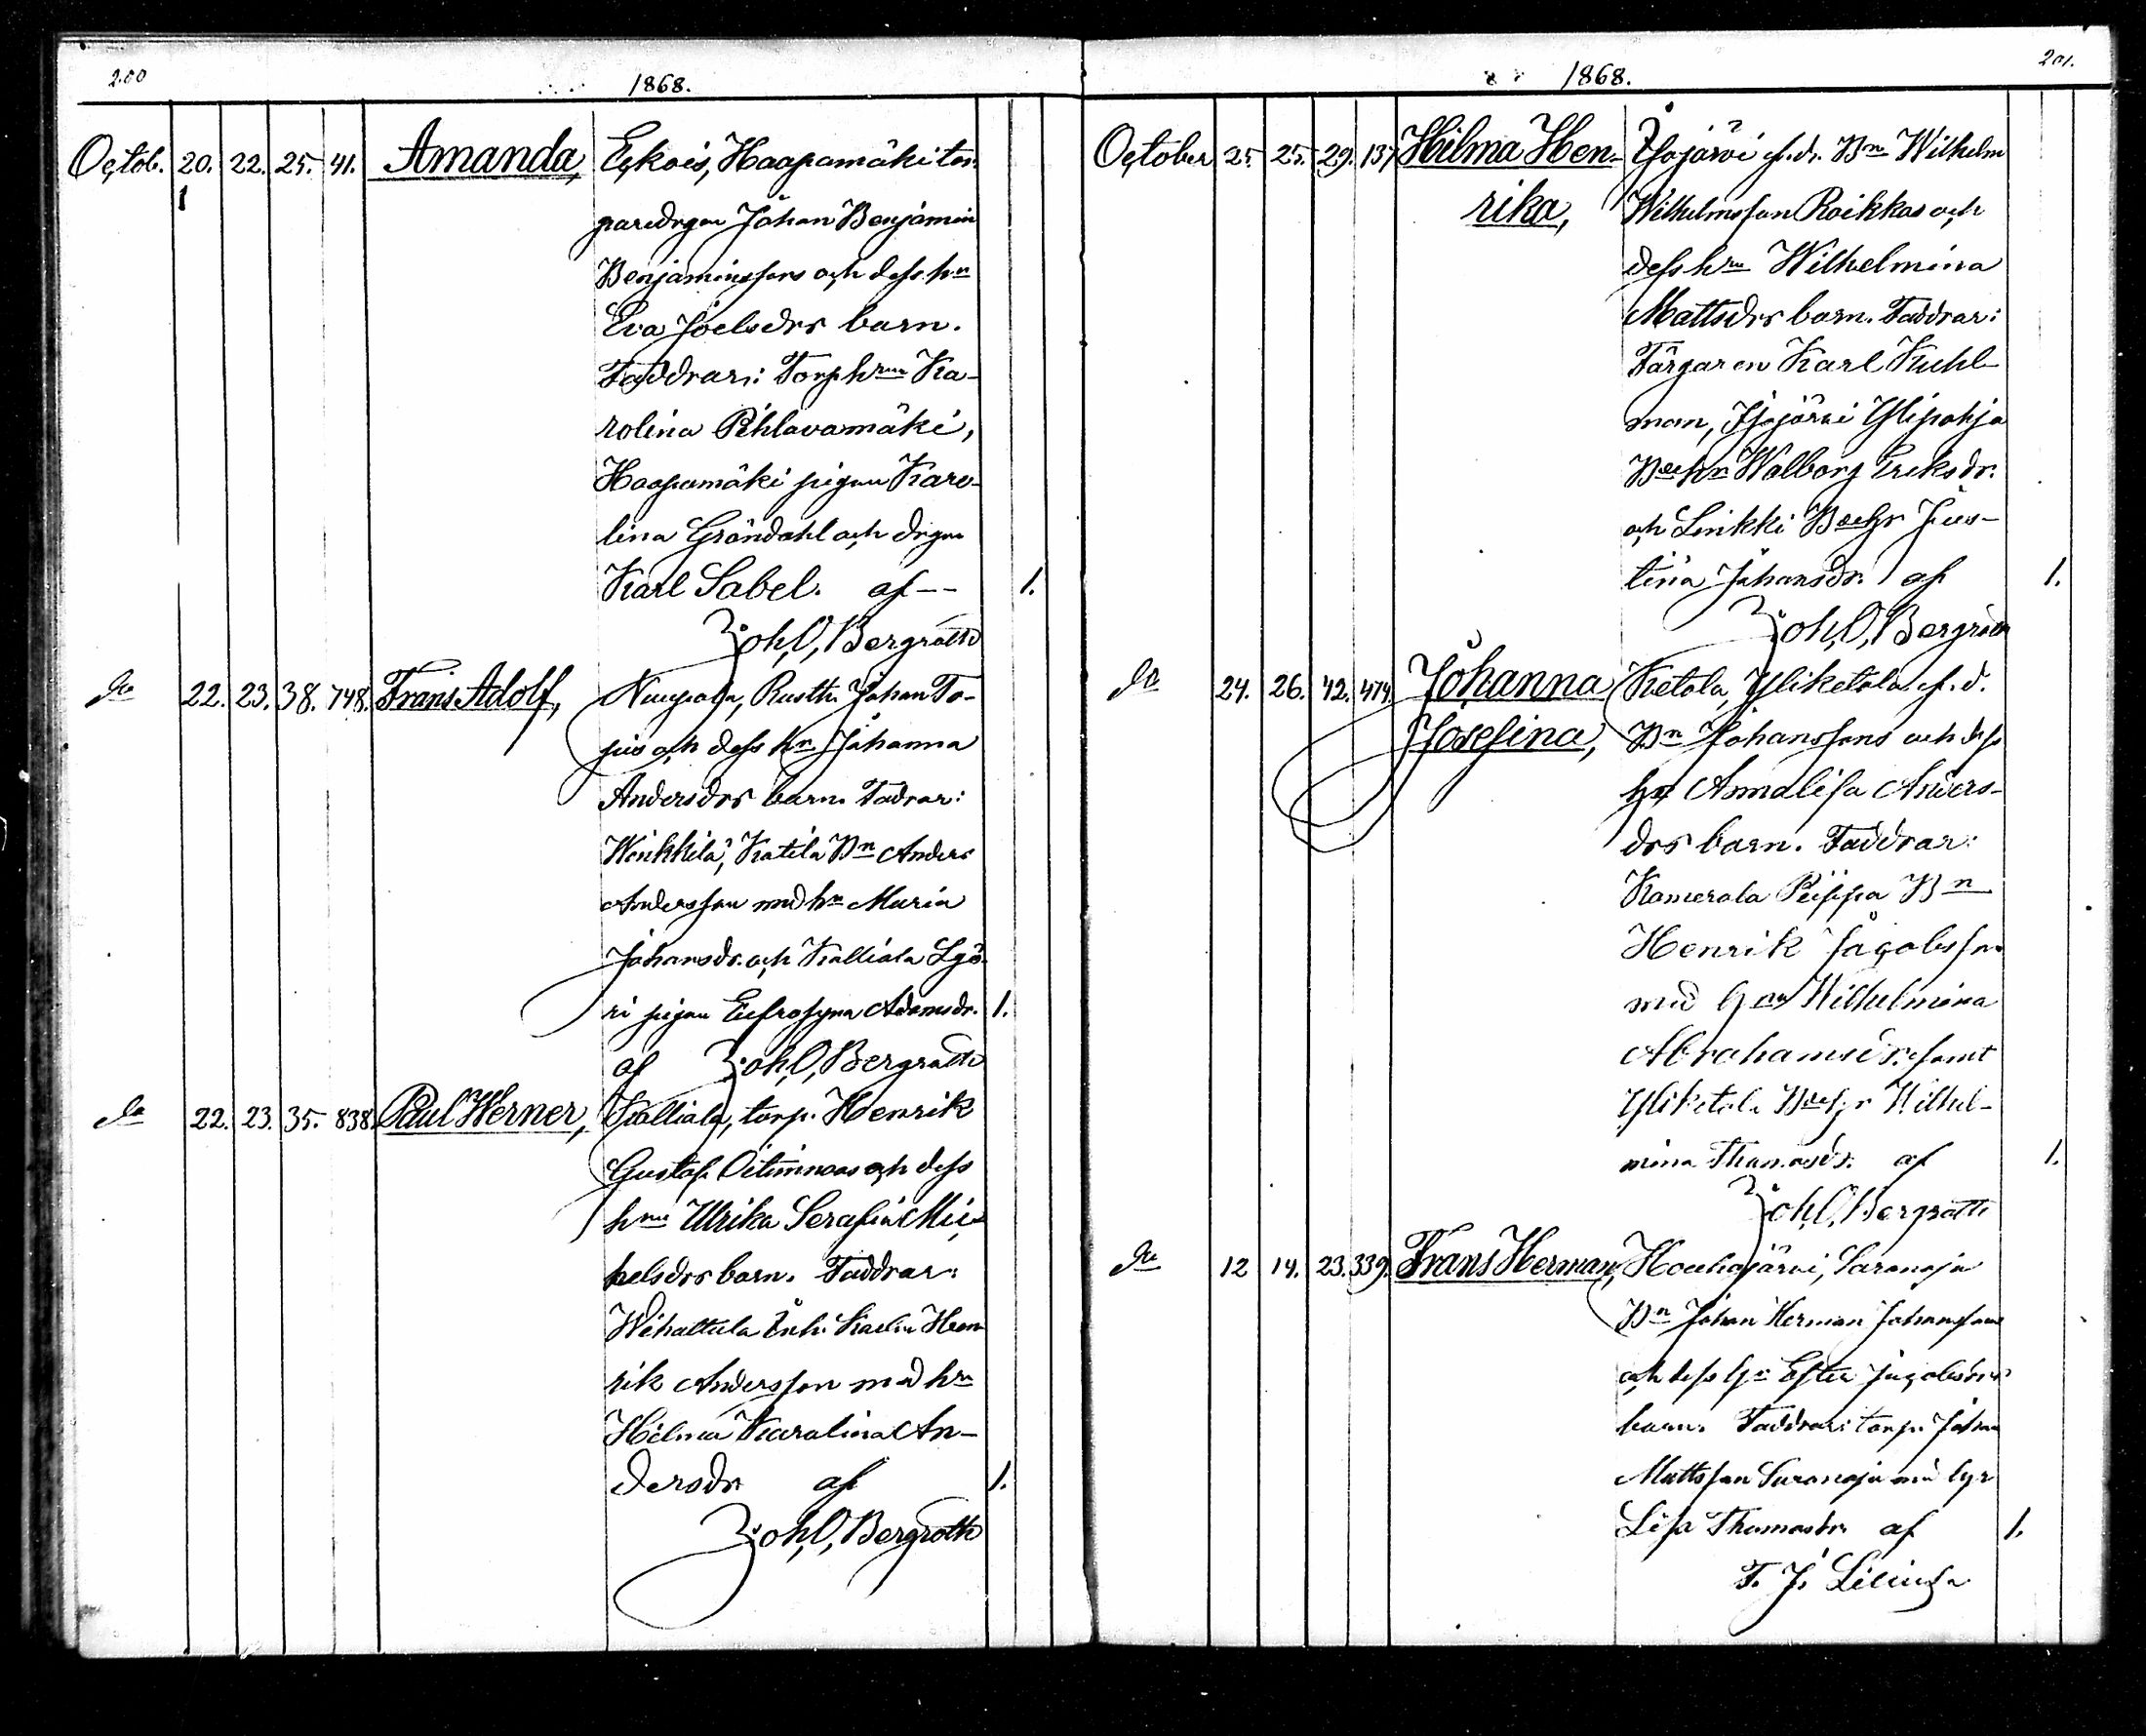 200
1868.
Octob. 20. 22. 25. 41. Amanda, Eckois, Haapamäki tor-
paredrgen Johan Benjamin
Benjaminssons och dess hn
Eva Joelsdrs barn.
Faddrar: Torp hrun Ka-
rolina Pihlavamäki,
Haapamäki pigan Karo-
lina Gröndahl och drgen
Karl Sabel. af -- 1.
Joh, O, Bergroth
do 22. 23. 38. 748. Frans Adolf, Rusth. Johan To-
och dess hn Johanna
Andersdrs barn. Fadrar:
Katila Bn Anders
Andersson med hn Maria
Johansdr. och Kalliala
ri pigan Eufrosyna Adamsdr. 1.
af Joh, O, Bergroth
do 22. 23. 35. 838. Paul Werner, Kalliala, torp. Henrik
Gustaf och dess
hru Ulrika Serafia Mic-
helsdrs barn. Faddrar:
Wihattula Inh. Hen-
rik Andersson med hru
Hilma Karolina An-
dersdr af 1.
Joh, O, Bergroth
201.
1868.
October 25. 25. 29. 137 Hilma Hen- Isojärvi f. d. Bn Wilhelm
rika, Wilhelmsson Roikkas och
dess hru Wilhelmina
Mattsdrs barn. Faddrar:
Färgaren Karl Kuhl-
man, Isojärvi Ylipohja
Walborg Eriksdr.
och Linikki Jus-
tina Johansdr. af 1.
Joh, O, Bergroth
do 24. 26. 42. 474. Johanna Ketola, Yliketola f. d.
Josefina, Bn Johanssons och dess
hr Annalisa Anders-
drs barn. Faddrar:
Kamerala Peippa Bn
Henrik Jacobsson
med Wilhelmina
Abrahamsdr. samt
Yliketola Wilhel-
mina Thomasdr. af 1.
Joh, O, Bergroth
do 12 14. 23. 339. Frans Herman, Houhajärvi, Saranoja
Bn Johan Herman Johanssons
och dess hr Ester Jacobsdrs
barn. Faddrar: torp. Johan
Mattsson Saranoja med hr
Lisa Thomasdr. af 1.
F. J.